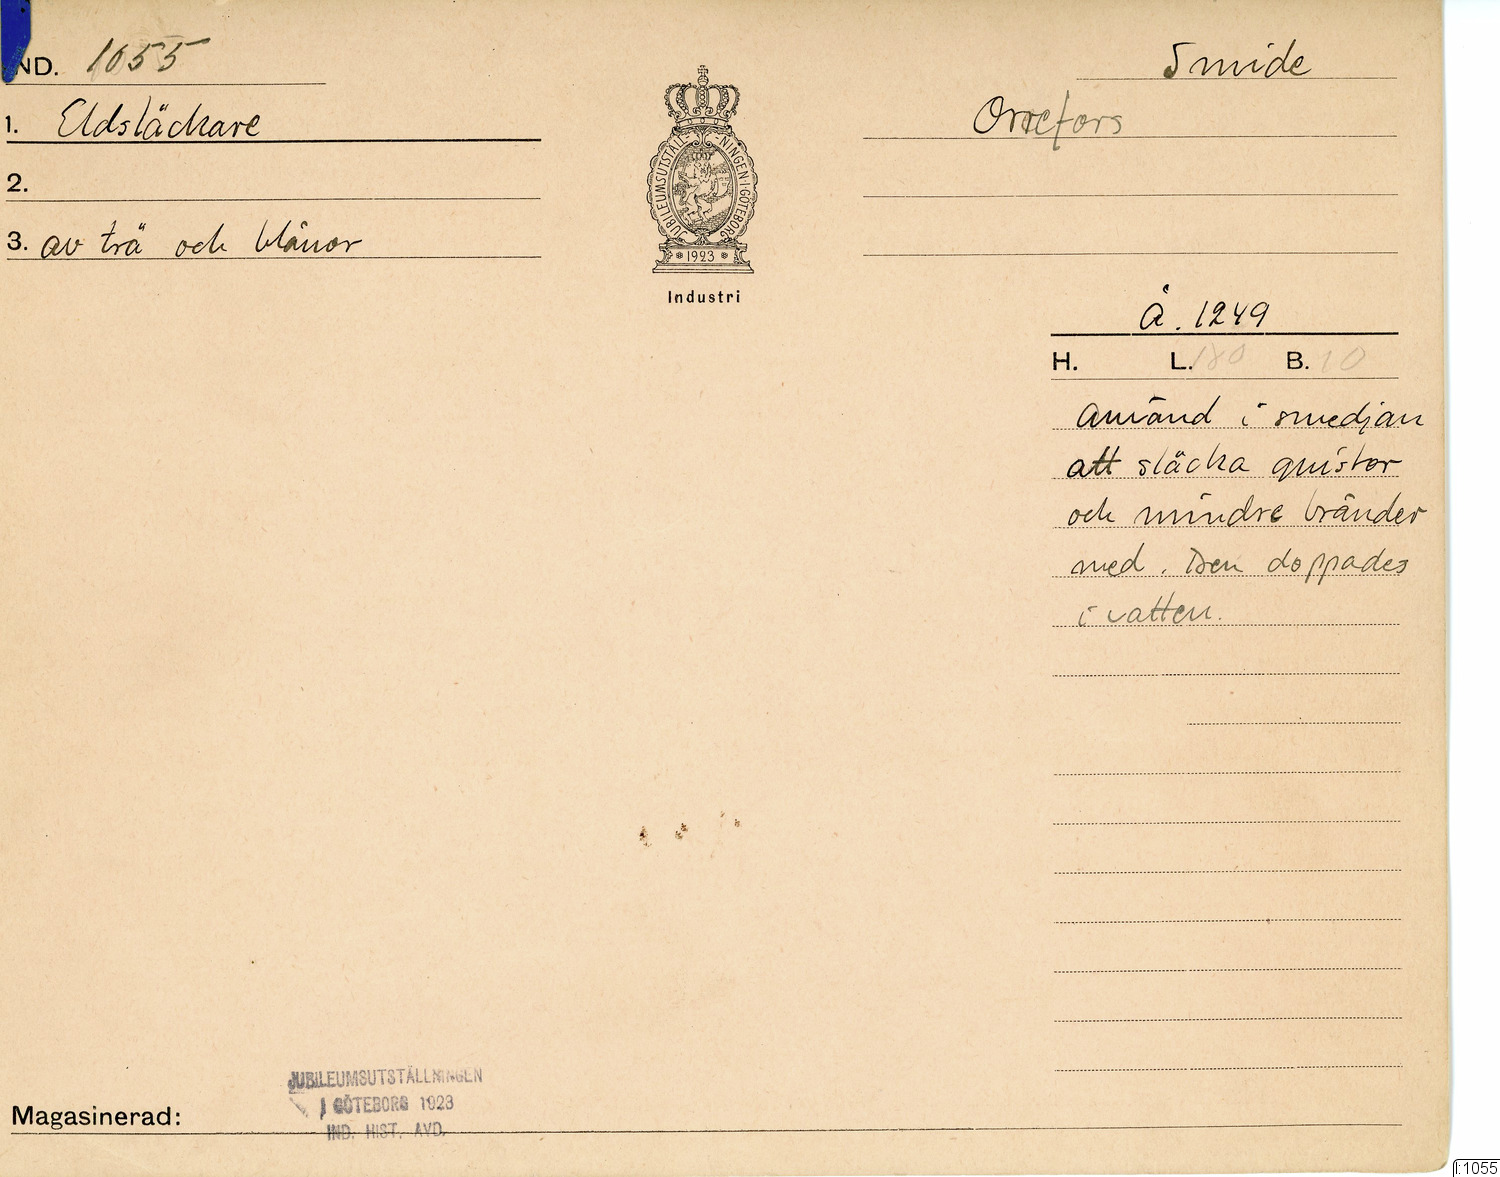 IND. 1055
Smide
1. Eldsläckare
Orrefors
2.
3. av trä och blånor
JUBILEUMSUTSTÄLLNINGEN I GÖTEBORG
1923
Industri
Å. 1249
H. L. 180 B. 10
Använd i smedjan
att släcka gnistor
och mindre bränder
med. Den doppades
i vatten.
JUBILEUMSUTSTÄLLNINGEN
I GÖTEBORG 1923
IND. HIST. AVD.
Magasinerad:
I:1055